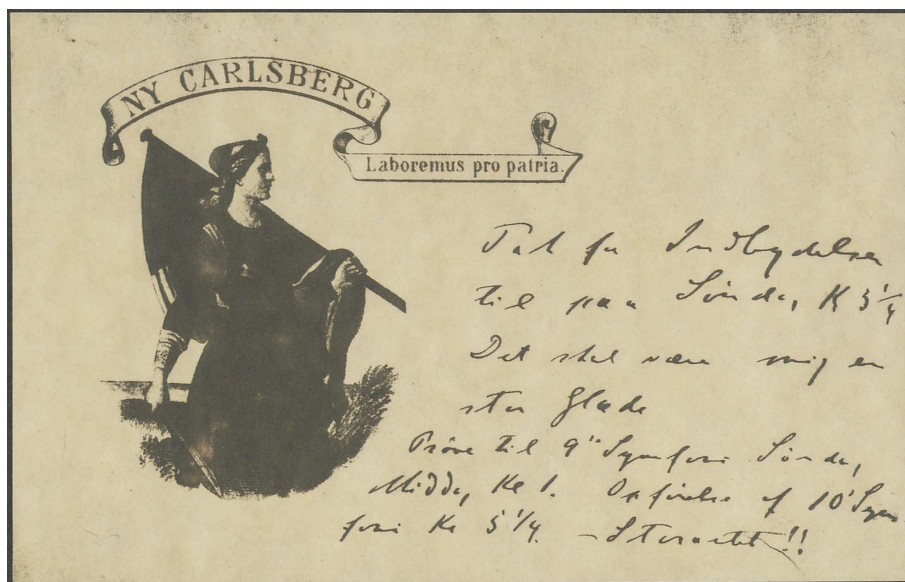 NY CARLSBERG
Laboremus pro patria.
Tak for Indbydelsen
til paa Sønda, K 5 1/4
Det skal være mig en
stor Glæde
Prøve til 9" Symfoni Sønda,
Midda, Kl 1. Opførelse af 10' Sym
foni Kl 5 1/4. - Storartet!!